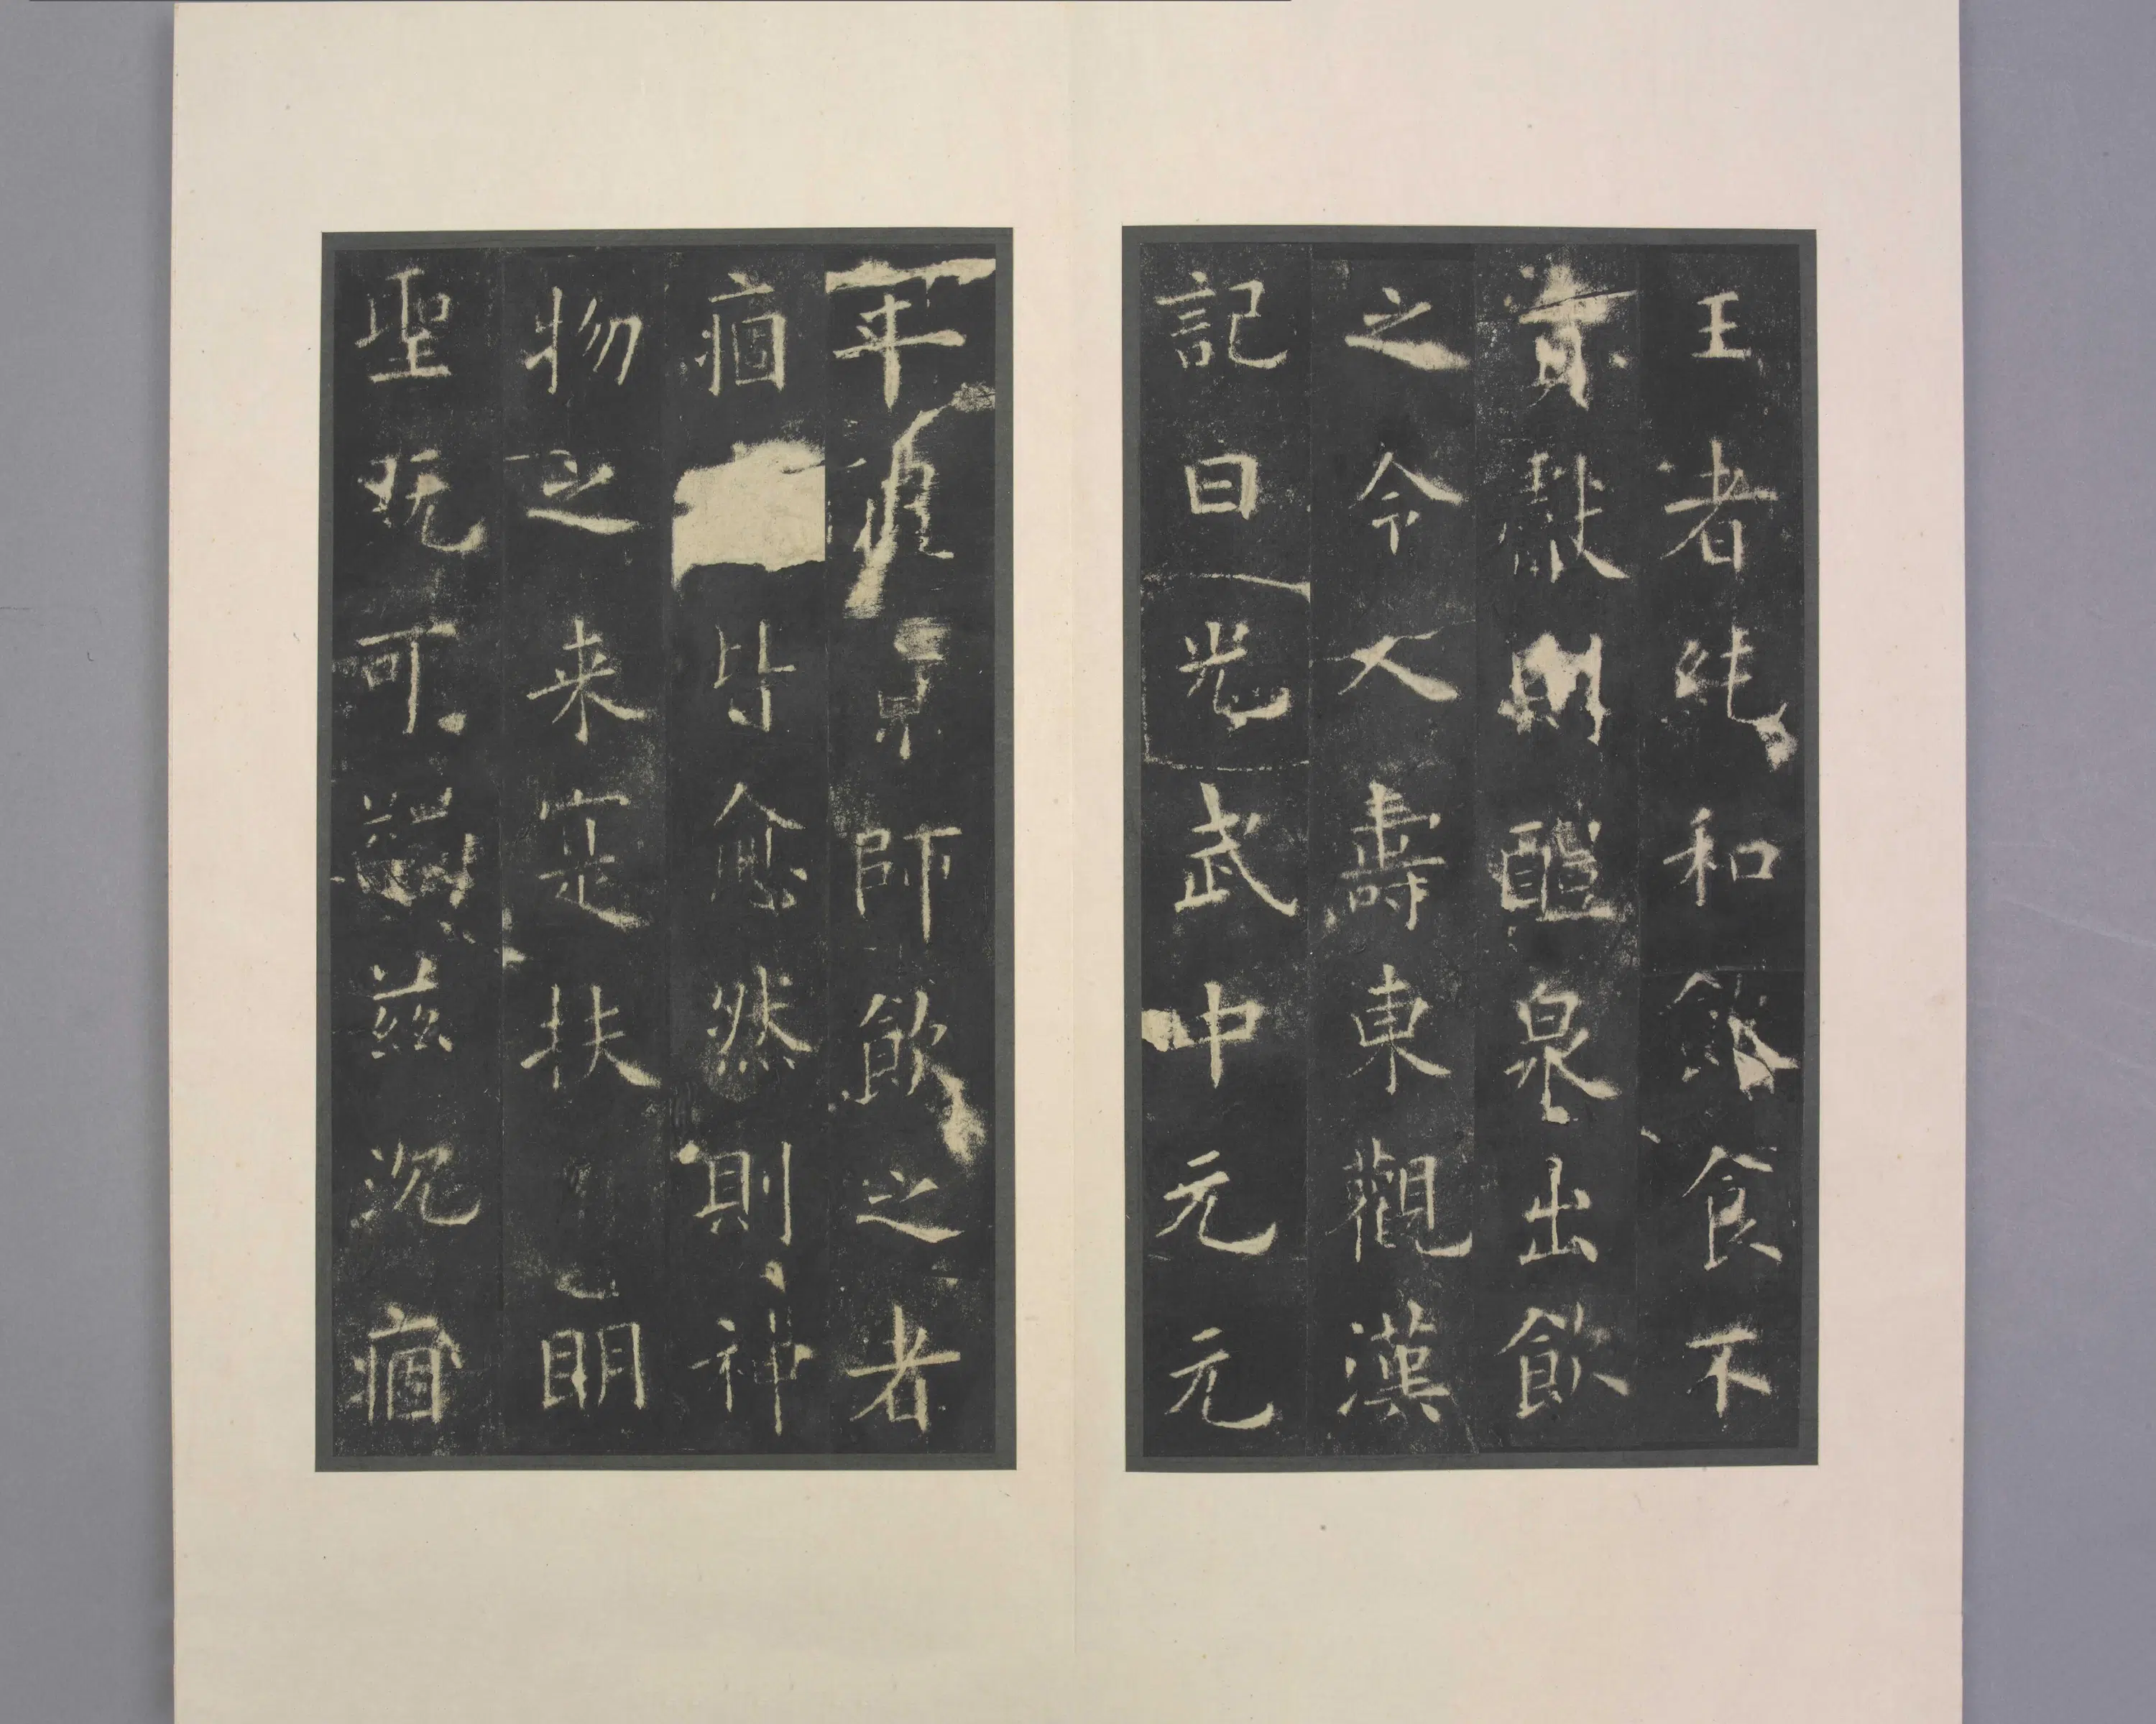 王者純和飲食不
貢獻則醴泉出飲
之令人壽東觀漢
記曰光武中元元
年京師飲之者
痼皆愈然則神
物之来寔扶明
聖既可蠲茲沉痼